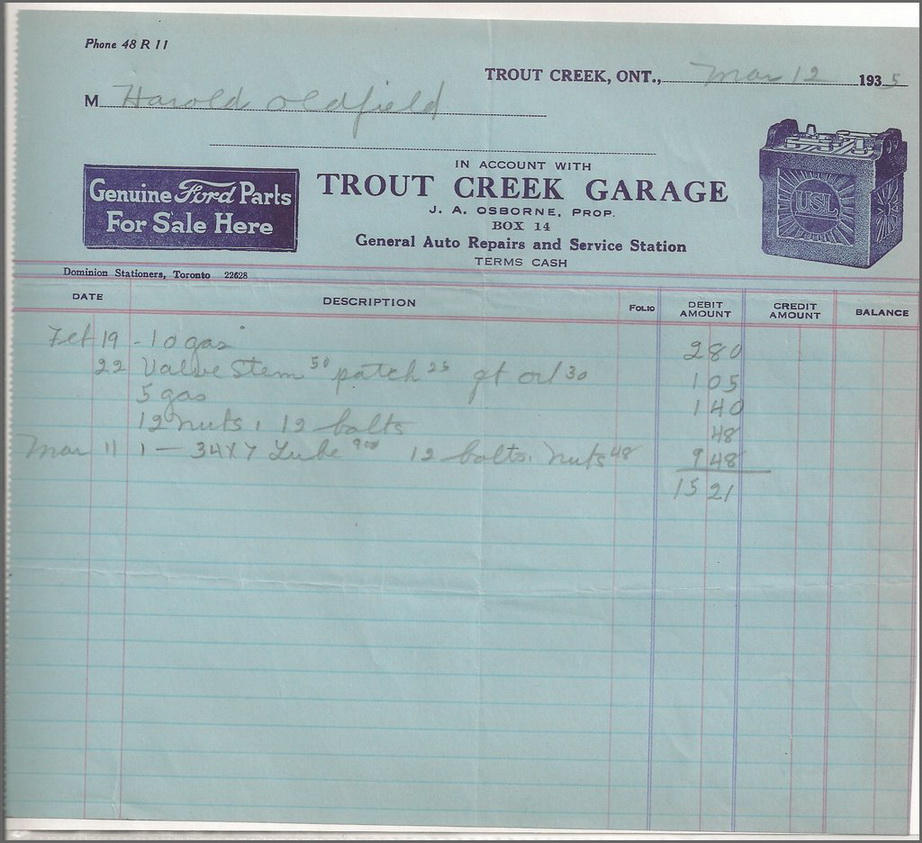 Phone 48 R 11
TROUT CREEK, ONT., Mar 12 1935
M Harold Oldfield
IN ACCOUNT WITH
TROUT CREEK GARAGE
J. A. OSBORNE, PROP.
BOX 14
General Auto Repairs and Service Station
TERMS CASH
Genuine Ford Parts
For Sale Here
USL
Dominion Stationers, Toronto 22628
DATE DESCRIPTION FOLIO DEBIT AMOUNT CREDIT AMOUNT BALANCE
Feb 19 - 10 gas 2 80
22 Valve Stem 50 patch 25 qt oil 30 1 05
5 gas 1 40
12 nuts, 12 bolts 48
Mar 11 1 — 34X7 Tube 900 12 bolts, nuts 48 9 48
15 21